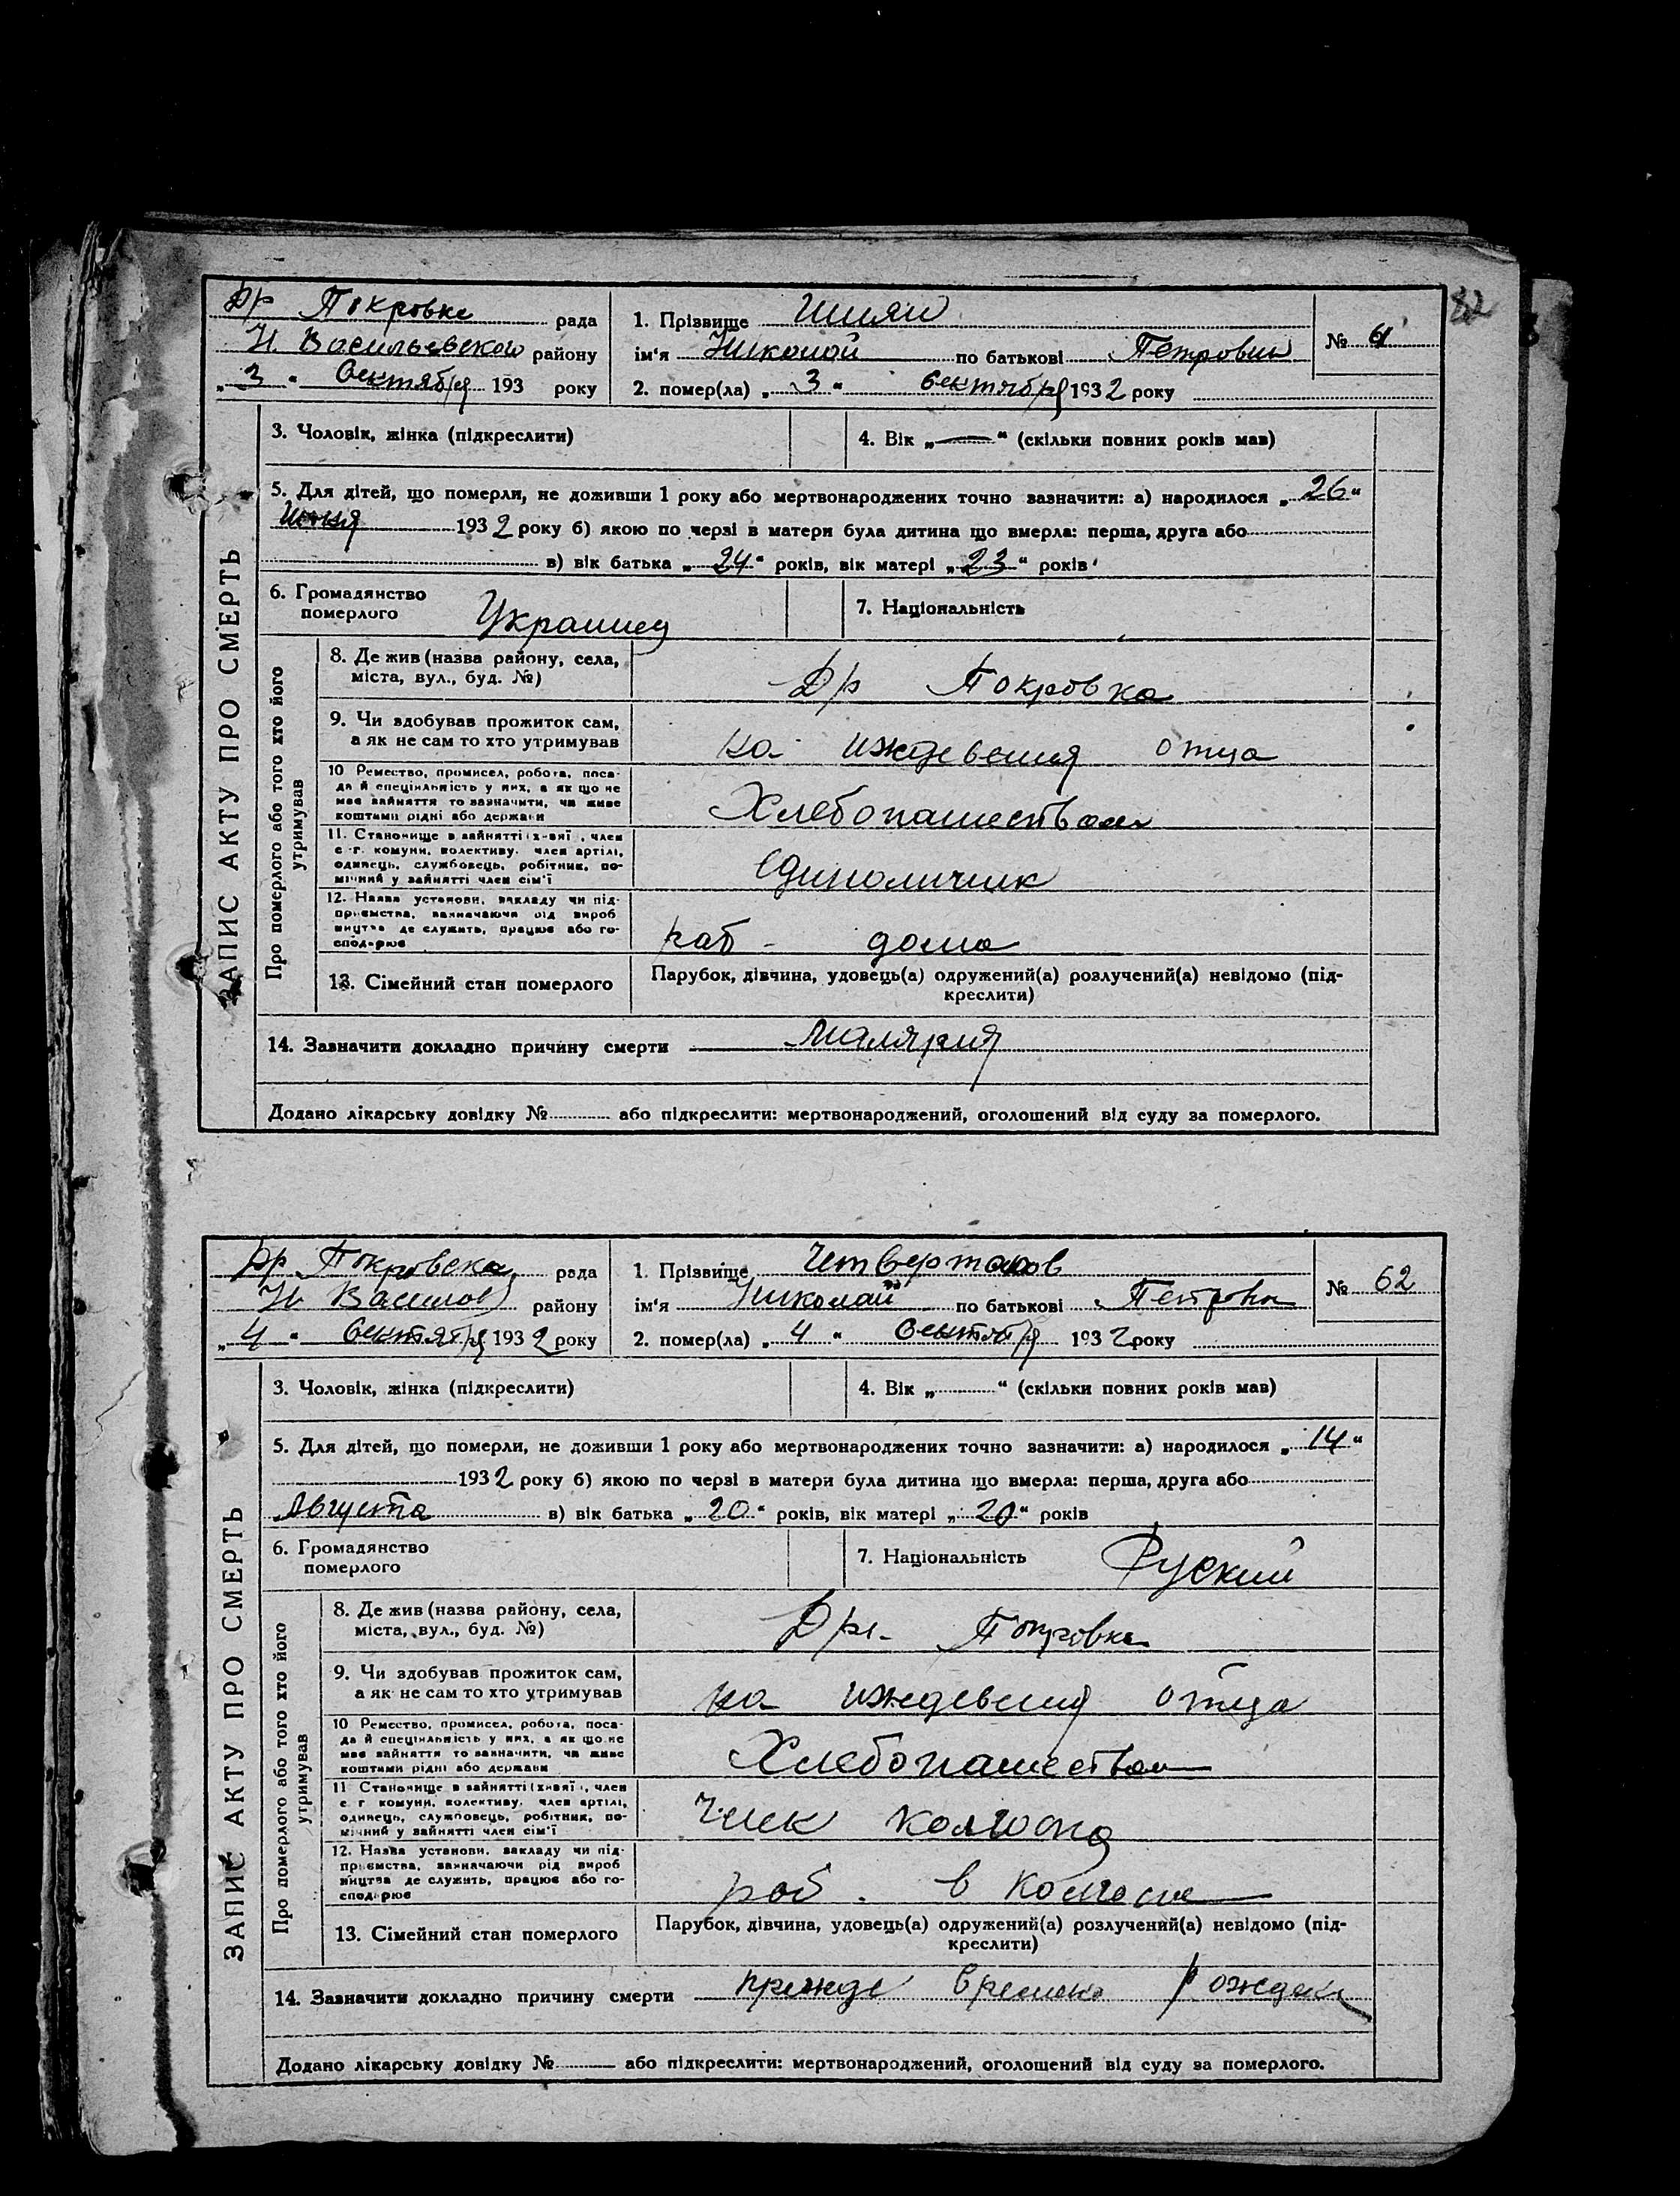 82
Др Покровка рада
Н. Васильевского району
„ 3 “ Сентября 193 року
1. Прізвище Шиян
ім'я Николай по батькові Петрович
2. помер(ла) „ 3 “ Сентября 1932 року
№ 61
ЗАПИС АКТУ ПРО СМЕРТЬ
3. Чоловік, жінка (підкреслити)
4. Вік „ — “ (скільки повних років мав)
5. Для дітей, що померли, не доживши 1 року або мертвонароджених точно зазначити: а) народилося „ 26 “
1932 року б) якою по черзі в матери була дитина що вмерла: перша, друга або
в) вік батька „ 24 “ років, вік матері „ 23 “ років
6. Громадянство померлого Украинец
7. Національність
Про померлого або того хто його утримував
8. Де жив (назва району, села,
міста, вул., буд. №)
Др Покровка
9. Чи здобував прожиток сам,
а як не сам то хто утримував
на иждевения отца
10 Ремество, промисел, робота, поса-
да й спеціяльність у них, а як що не
має зайняття то зазначити, чи живе
коштами рідні або держави
Хлебопашеством
11. Становище в зайнятті (х-вяї), член
с.-г. комуни, колективу, член артілі,
одинець, службовець, робітник, по-
мічний у зайнятті член сім'ї
Единоличник
12. Назва установи, закладу чи під-
приємства, зазначаючи рід вироб
ництва де служить, працює або го-
сподарює
раб - дома
13. Сімейний стан померлого
Парубок, дівчина, удовець(а) одружений(а) розлучений(а) невідомо (під-
креслити)
14. Зазначити докладно причину смерти Малярия
Додано лікарську довідку № або підкреслити: мертвонароджений, оголошений від суду за померлого.
Др Покровска рада
Н Василов району
„ 4 “ Сентября 1932 року
1. Прізвище Четвертаков
ім'я Николай по батькові Петрович
2. помер(ла) „ 4 “ Сентября 1932 року
№ 62
ЗАПИС АКТУ ПРО СМЕРТЬ
3. Чоловік, жінка (підкреслити)
4. Вік „ “ (скільки повних років мав)
5. Для дітей, що померли, не доживши 1 року або мертвонароджених точно зазначити: а) народилося „ 14 “
1932 року б) якою по черзі в матери була дитина що вмерла: перша, друга або
Августа в) вік батька „ 20 “ років, вік матері „ 20 “ років
6. Громадянство померлого
7. Національність Руский
Про померлого або того хто його утримував
8. Де жив (назва району, села,
міста, вул., буд. №)
Др. Покровка
9. Чи здобував прожиток сам,
а як не сам то хто утримував
на иждевения отца
10 Ремество, промисел, робота, поса-
да й спеціяльність у них, а як що не
має зайняття то зазначити, чи живе
коштами рідні або держави
Хлебопашеством
11 Становище в зайнятті (х-вяї), член
с. г. комуни, колективу, член артілі,
одинець, службовець, робітник, по-
мічний у зайнятті член сім'ї
Член колгоспа
12. Назва установи, закладу чи під-
приємства, зазначаючи рід вироб
ництва де служить, працює або го-
сподарює
раб. в колгоспе
13. Сімейний стан померлого
Парубок, дівчина, удовець(а) одружений(а) розлучений(а) невідомо (під-
креслити)
14. Зазначити докладно причину смерти прежде времено
Додано лікарську довідку № або підкреслити: мертвонароджений, оголошений від суду за померлого.